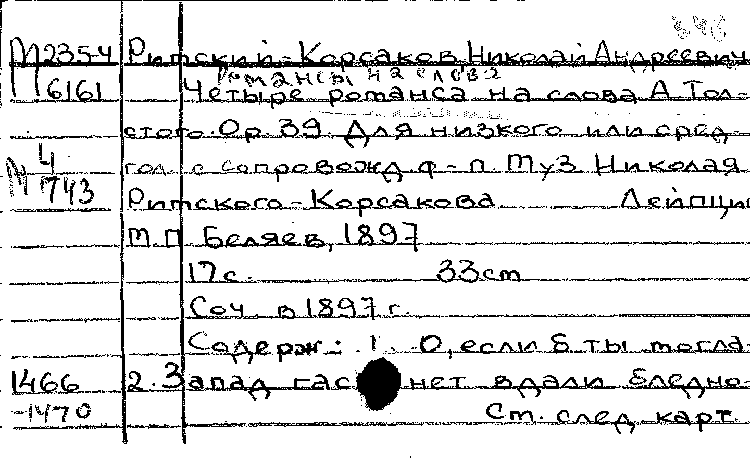 М2354 Римский-Корсаков, Николай Андреевич
романсы на слова
М6161 Четыре романса на слова А Тол-
стого. Ор 39. Для низкого или сред-
М 4/743 гол с сопровожд ф-п Муз Николая
Римского-Корсакова Лейпциг
М.П. Беляев, 1897
17с. 33см
Соч. в 1897г.
Содерж.: 1. О, если б ты могла
1466 2. Запад гаснет вдали бледно-
-1470 См. след. карт.